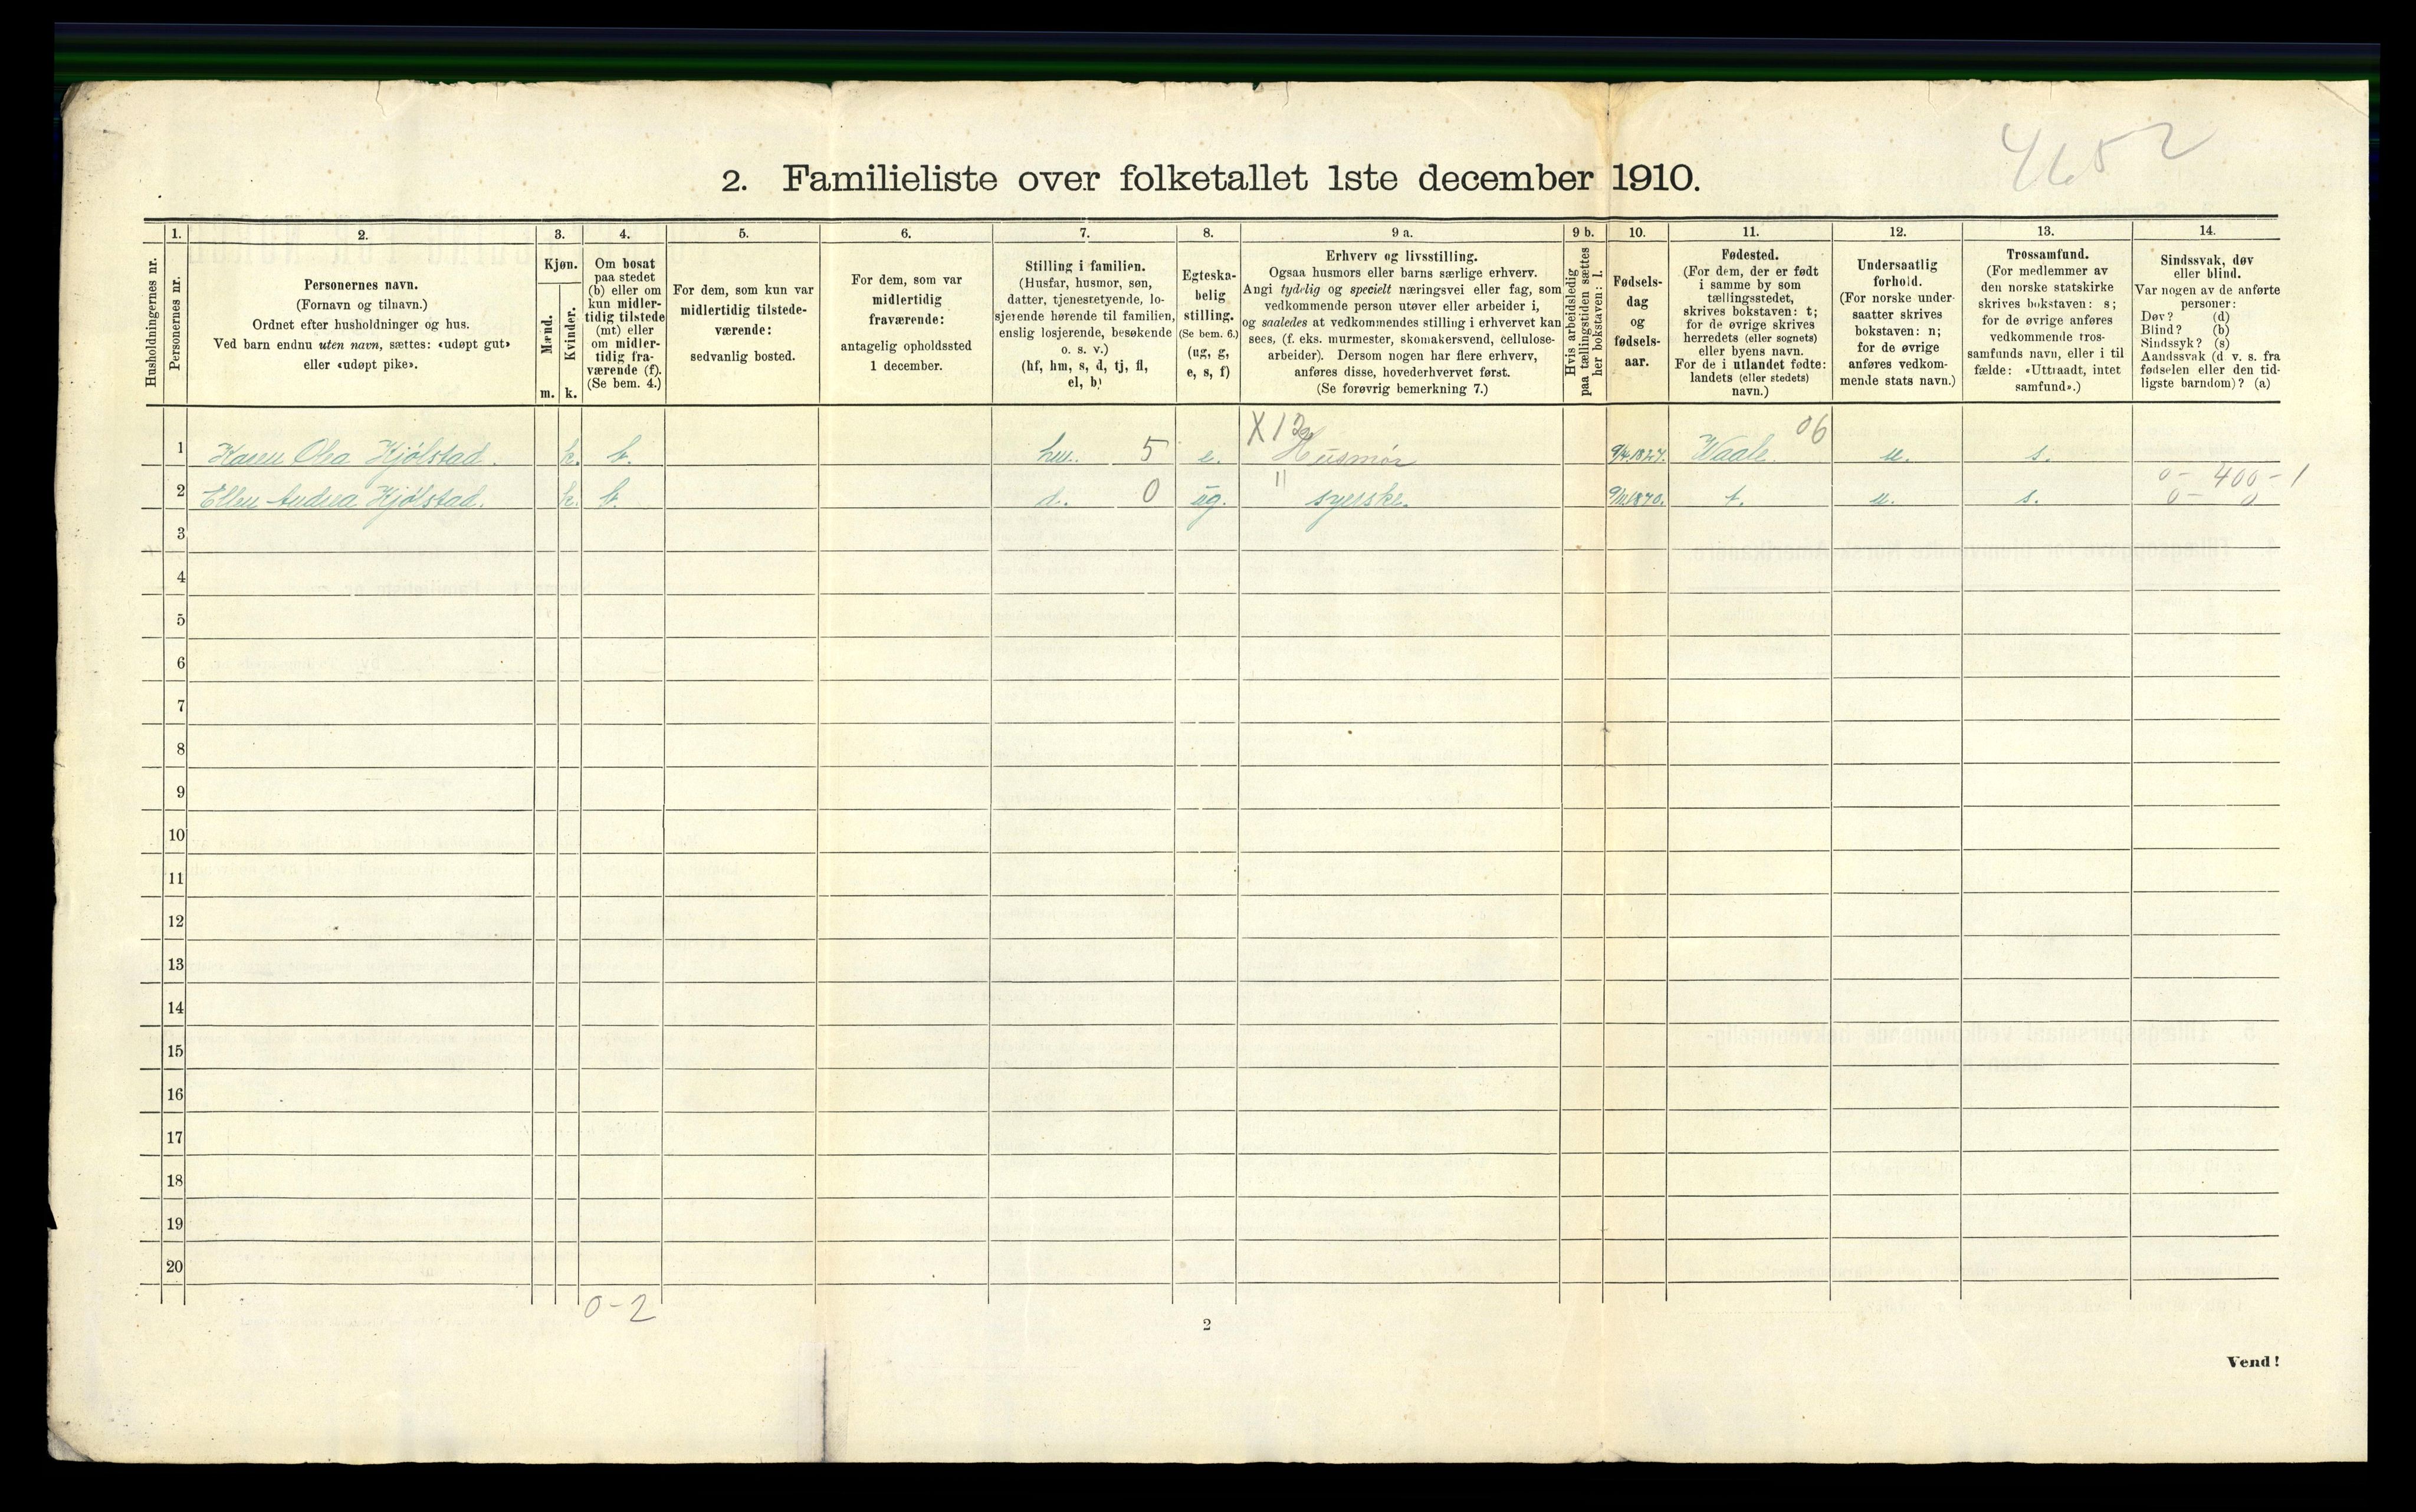 4652
2. Familieliste over folketallet 1ste december 1910.
Husholdningernes nr.
1.
Personernes nr.
2.
Personernes navn.
(Fornavn og tilnavn.)
Ordnet efter husholdninger og hus.
Ved barn endnu uten navn, sættes: «udøpt gut»
eller «udøpt pike».
3.
Kjøn.
Mænd.
Kvinder.
m. k.
4.
Om bosat
paa stedet
(b) eller om
kun midler-
tidig tilstede
(mt) eller
om midler-
tidig fra-
værende (f).
(Se bem. 4.)
5.
For dem, som kun var
midlertidig tilstede-
værende:
sedvanlig bosted.
6.
For dem, som var
midlertidig
fraværende:
antagelig opholdssted
1 december.
7.
Stilling i familien.
(Husfar, husmor, søn,
datter, tjenestetyende, lo-
sjerende hørende til familien,
enslig losjerende, besøkende
o. s. v.)
(hf, hm, s, d, tj, fl,
el, b)
8.
Egteska-
belig
stilling.
(Se bem. 6.)
(ug, g,
e, s, f)
9 a.
Erhverv og livsstilling.
Ogsaa husmors eller barns særlige erhverv.
Angi tydelig og specielt næringsvei eller fag, som
vedkommende person utøver eller arbeider i,
og saaledes at vedkommendes stilling i erhvervet kan
sees, (f. eks. murmester, skomakersvend, cellulose-
arbeider). Dersom nogen har flere erhverv,
anføres disse, hovederhvervet først.
(Se forøvrig bemerkning 7.)
9 b.
Hvis arbeidsledig
paa tællingstiden sættes
her bokstaven: l.
10.
Fødsels-
dag
og
fødsels-
aar.
11.
Fødested.
(For dem, der er født
i samme by som
tællingsstedet,
skrives bokstaven: t;
for de øvrige skrives
herredets (eller sognets)
eller byens navn.
For de i utlandet fødte:
landets (eller stedets)
navn.)
12.
Undersaatlig
forhold.
(For norske under-
saatter skrives
bokstaven: n;
for de øvrige
anføres vedkom-
mende stats navn.)
13.
Trossamfund.
(For medlemmer av
den norske statskirke
skrives bokstaven: s;
for de øvrige anføres
vedkommende tros-
samfunds navn, eller i til
fælde: «Uttraadt, intet
samfund».)
14.
Sindssvak, døv
eller blind.
Var nogen av de anførte
personer:
Døv? (d)
Blind? (b)
Sindssyk? (s)
Aandssvak (d v. s. fra
fødselen eller den tid-
ligste barndom)? (a)
1 Karen Olea Kjølstad. k. b. hm. 5 e. X 12 Husmor 1827. Waale. 06 n. s.
0 - 400 - 1
2 Ellen Andrea Kjølstad. k. b. d. 0 ug. " syerske. 1870. t. n. s. 0 - 0
3
4
5
6
7
8
9
10
11
12
13
14
15
16
17
18
19
20
0 - 2
2
Vend!